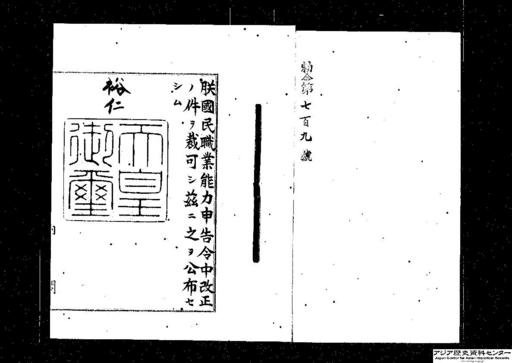 勅令第七百九號
朕國民職業能力申告令中改正
ノ件ヲ裁可シ茲ニ之ヲ公布セ
シム
裕仁
天皇
御璽
内閣
アジア歴史資料センター
Japan Center for Asian Historical Records